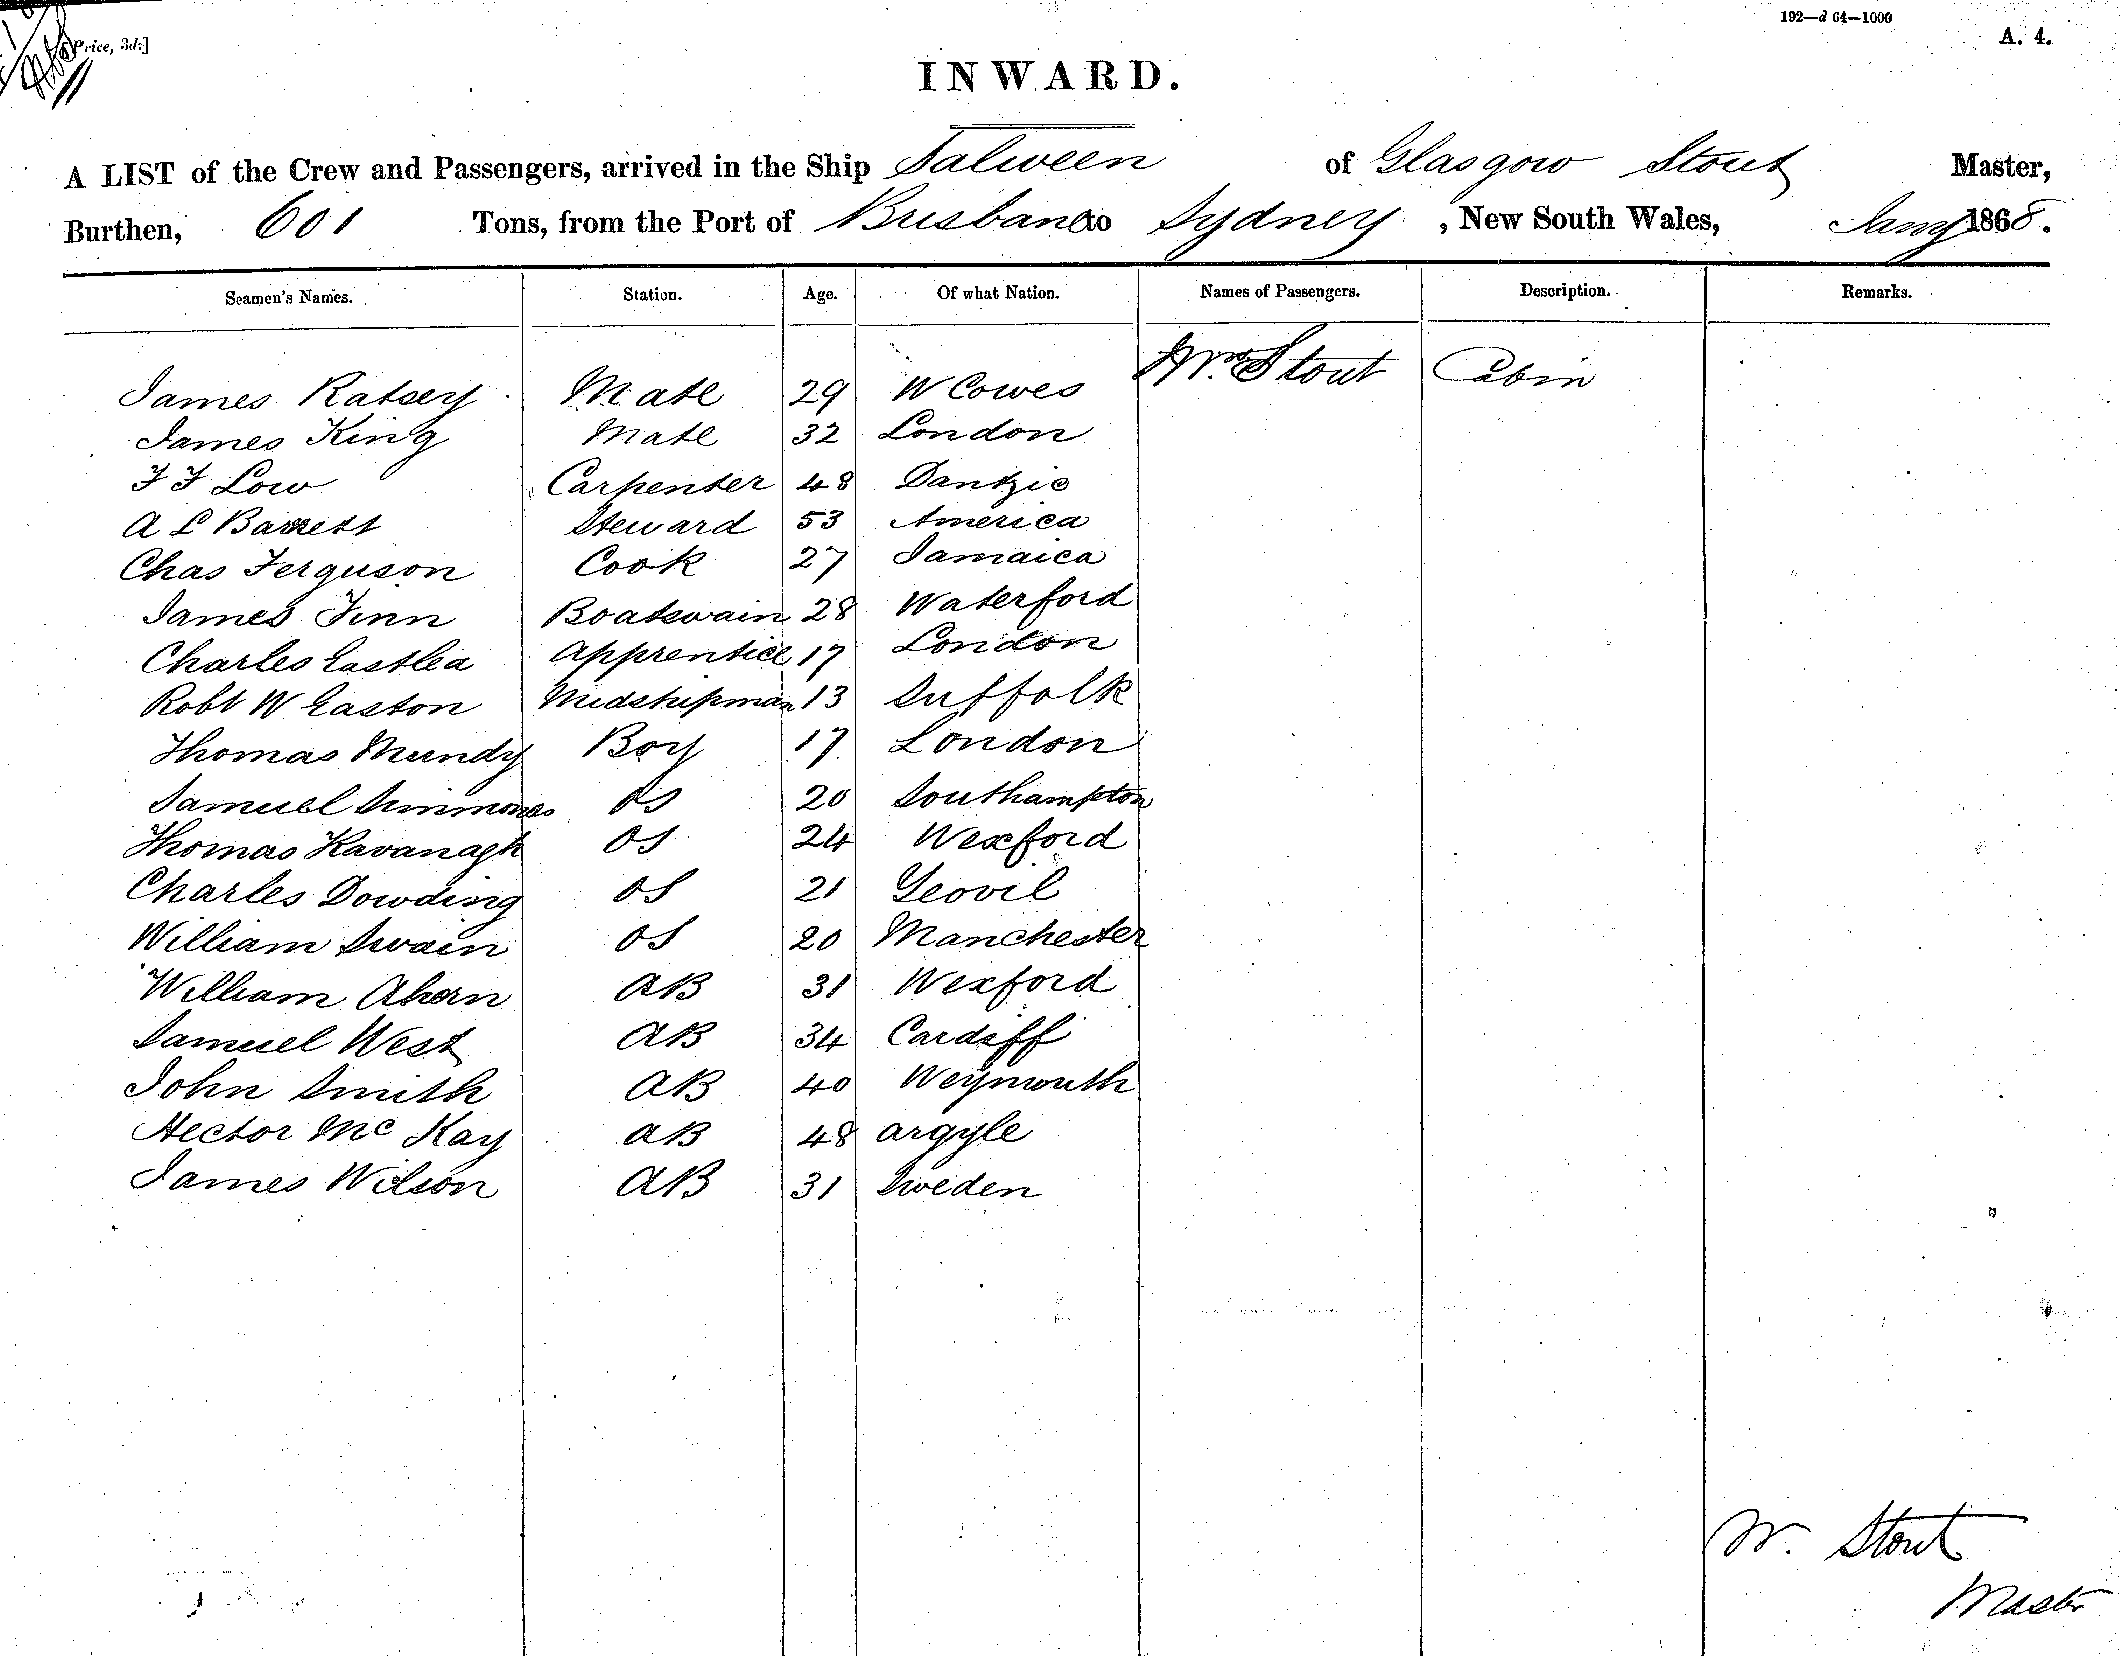 192—d 64—1000
Price, 3d.]
A. 4.
INWARD.
A LIST of the Crew and Passengers, arrived in the Ship Salween of Glasgow Stout Master,
Burthen, 601 Tons, from the Port of Brisbane to Sydney, New South Wales, Jany 1868.
Seamen's Names. Station. Age. Of what Nation. Names of Passengers. Description. Remarks.
Stout Cabin
James Ratsey Mate 29 W Cowes
James King Mate 32 London
F F Low Carpenter 48 Dantzic
A L Barrett Steward 53 America
Chas Ferguson Cook 27 Jamaica
James Finn Boatswain 28 Waterford
Charles Eastlea Apprentice 17 London
Robt W Easton Midshipman 13 Suffolk
Thomas Mundy Boy 17 London
Samuel Simmons OS 20 Southampton
Thomas Kavanagh OS 24 Wexford
Charles Dowding OS 21 Yeovil
William Swain OS 20 Manchester
William Ahern AB 31 Wexford
Samuel West AB 34 Cardiff
John Smith AB 40 Weymouth
Hector Mc Kay AB 48 Argyle
James Wilson AB 31 Sweden
W. Stout
Master